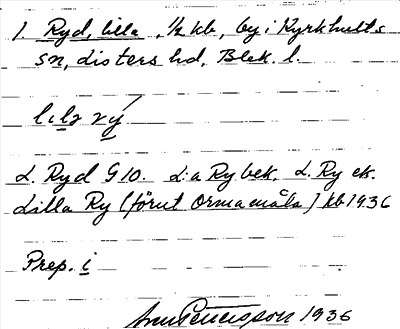 1. Ryd, lilla, ½ kb, by i Kyrkhults
sn, Listers hd, Blek. l.
lılz rý
L. Ryd G 10. L:a Ry bek. L. Ry ek.
Lilla Ry (förut Ormamåla) kb 1936
Prep. i
1936